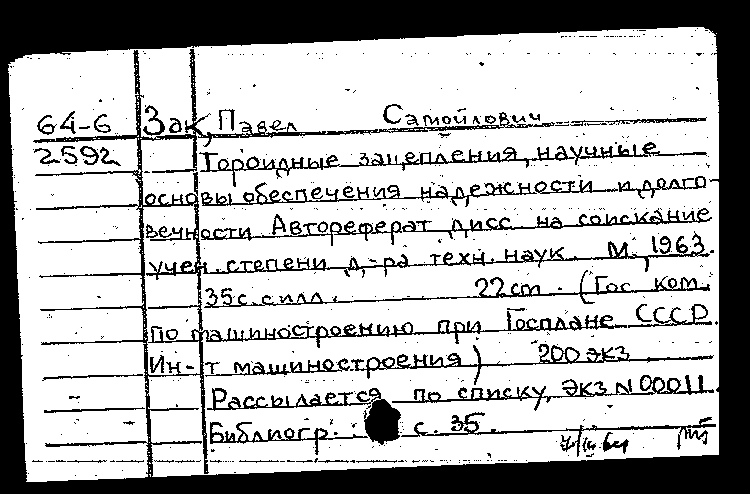 64-6 Зак, Павел Самойлович
2592 Тороидные зацепления, научные
основы обеспечения надежности и долго-
вечности. Автореферат дисс. на соискание
учен. степени д-ра техн. наук. М., 1963.
35 с. с илл. 22 cm. (Гос. ком.
по машиностроению при Госплане СССР.
Ин-т машиностроения) 200 экз.
Рассылается по списку, экз N 00011.
Библиогр.: с. 35.